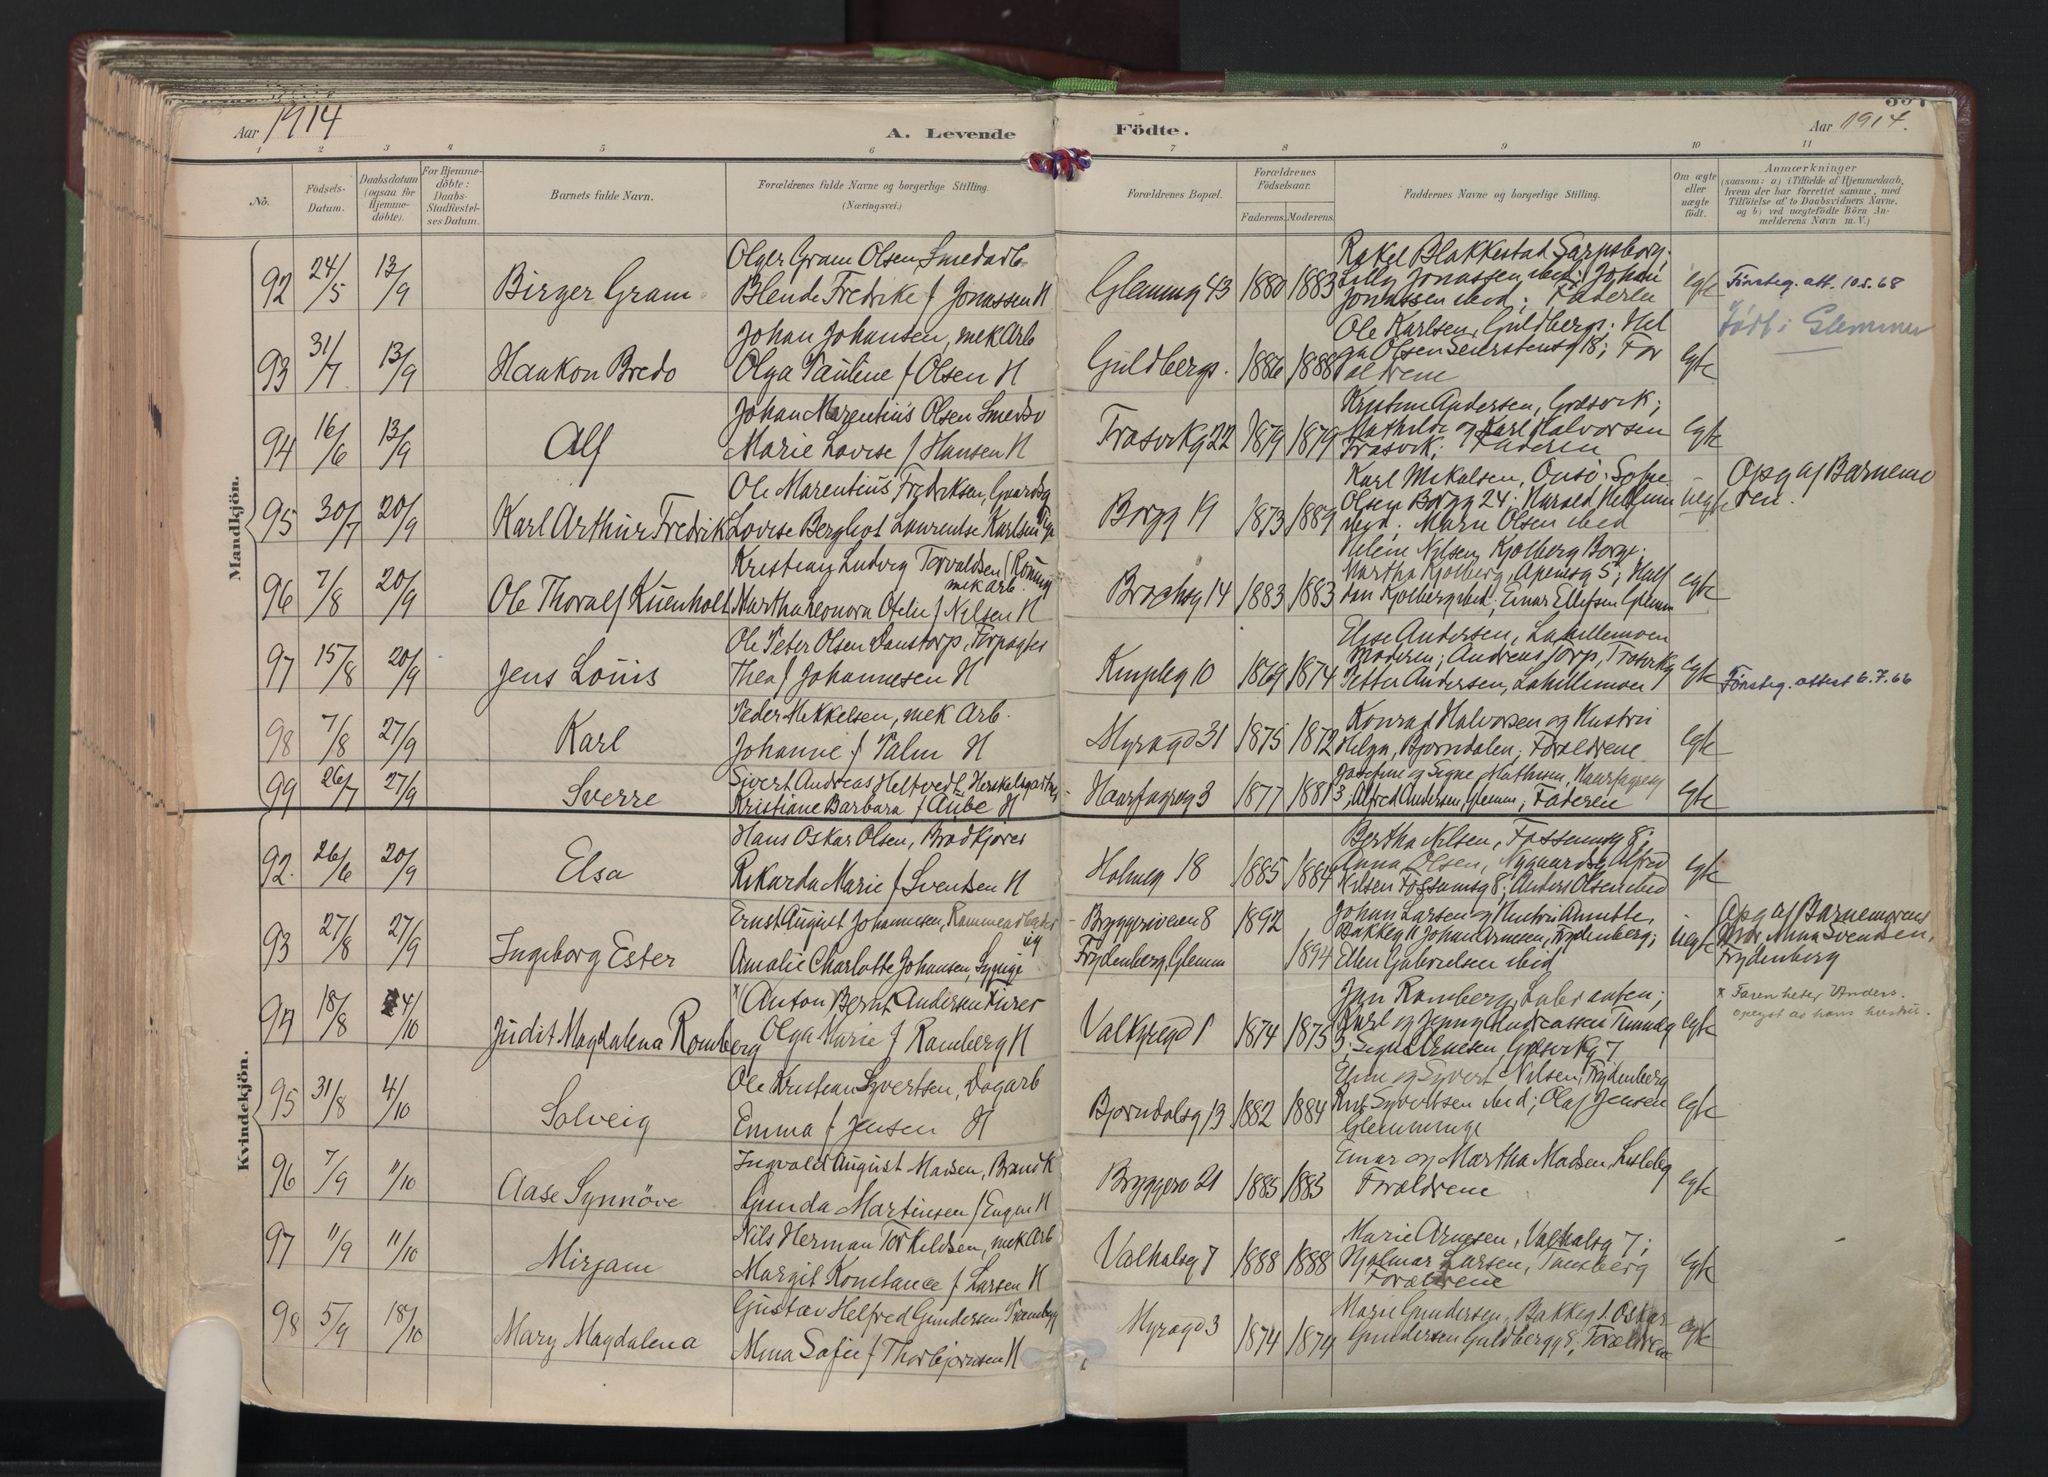 Aar 1914
A. Levende
Födte.
Aar 1914.
1 2 3 4 5 6 7 8 9 10 11
No.
Födsels-
Datum.
Daabsdatum
(ogsaa for
Hjemme-
döbte).
For Hjemme-
döbte:
Daabs-
Stadfæstel-
ses Datum.
Barnets fulde Navn.
Forældrenes fulde Navne og borgerlige Stilling.
(Næringsvei.)
Forældrenes Bopæl.
Forældrenes
Födselsaar.
Faderens. Moderens.
Faddernes Navne og borgerlige Stilling.
Om ægte
eller
uægte
födt.
Anmærkninger
(saasom: a) i Tilfælde af Hjemmedaab,
hvem der har forrettet samme, med
Tilföielse af to Daabsvidners Navne,
og b) ved uægtefödte Börn An-
melderens Navn m. V.)
Mandkjön.
92 24/5 13/9 Birger Gram
Olger Gram Olsen Smedarb
Blende Fredrike f Jonassen H
Glemmg 43 1880 1883
Rakel Blakkestad Sarpsborg;
Lilly Jonassen ibid; Johan
Jonassen ibid; Faderen
egte
Tjensteg. att. 10.5.68
Født i Glemmen
93 31/7 13/9 Haakon Bredo
Johan Johansen, mek Arb
Olga Pauline f Olsen H
Guldbergs. 1886 1888
Ole Karlsen, Guldbergs; Hel
ga Olsen 18; For
ældrene
egte
94 16/6 13/9 Alf
Johan Marentius Olsen Smedsv
Marie Lovise f Hansen H
Trosvikg 22 1879 1879
Kristine Andersen, Græsvik;
Mathilde og Karl Halvorsen
Trosvik; Faderen
egte
95 30/7 20/9 Karl Arthur Fredrik
Ole Marentius Fredriksen,
Lovise Bergliot Laurentse Karlsen
Borgg 19 1873 1889
Karl Mikalsen, Onsö; Sofie
Olsen Borgg 24; Harald
ibid. Marie Olsen ibid
uegte
Opg af Barnemo
ren.
96 7/8 20/9 Ole Thoralf Kuenholt
Kristian Ludvig Torvaldsen
mek Arb.
Martha Leonora Otelie f Nilsen H
Brochsg 14 1883 1883
Helene Nilsen, Kjolberg Borge;
Martha Kjolberg, Apenesg 5; Half
dan Kjolberg ibid; Einar Ellefsen Glemm
egte
97 15/8 20/9 Jens Louis
Ole Peter Olsen Danstorp, Forpagter
Thea f Johannesen H
Kirkeg 10 1869 1874
Elise Andersen, Lahillemoen
Moderen; Andreas Torp, Trosvikg
Petter Andersen, Lahillemoen
egte
Tjensteg. attest 6.7.66
98 7/8 27/9 Karl
Peder Mikkelsen, mek Arb.
Johanne f Palm H
Myragd 31 1875 1872
Konrad Halvorsen og Hustru
Helga, Bjorndalen; Forældrene
egte
99 26/7 27/9 Sverre
Sivert Andreas Heltvedt,
Kristiane Barbara f Aube H
Haarfagreg 3 1877 1881
Josefine og Signe Mathisen, Haarfagreg
3; Alfred Andersen, Glemm; Faderen
egte
Kvindekjön.
92. 26/6 20/9 Elsa
Hans Oskar Olsen, Brödkjører
Rikarda Marie f Svendsen H
Holmeg 18 1885 1884
Bertha Nilsen, Fossumsg 8;
Anna Olsen, Nygaardsg Alfred
Nilsen Fossumsg 8; Anders Olsen ibid
egte
93 27/8 27/9 Ingeborg Ester
Ernst August Johannesen, Rammearbeider
Amalie Charlotte Johansen, Sypige
Bryggeriveien 8 1892
Frydenberg, Glemm 1894
Johan Larsen og Hustru Annette,
Bakkeg 11 Johan Arnesen, Frydenberg;
Ellen Gabrielsen ibid
uegte
Opg af Barnemorens
Mor Anna Svendsen,
Frydenberg
94 18/8 4/10 Judit Magdalena Romberg
x/ Anton Bernt Andersen Murer
Olga Marie f Ramberg H
Valkyregd 1 1874 1875
Jan Ramberg, Labranten;
Karl og Jenny Andreassen
3; Signe Arnesen, Græsvikg 7
egte
x Faren heter Anders.
oplyst av hans hustru.
95 31/8 4/10 Solveig
Ole Kristian Syvertsen, Dagarb
Emma f Jensen H
Bjorndalsg 13 1882 1884
Eline og Syvert Nilsen, Frydenberg
Syvertsen ibid; Olaf Jensen
Glemminge
egte
96 7/9 11/10 Aase Synnöve
Ingvald August Madsen, Brandk
Gunda Martinsen f Engen H
Bryggero 21 1885 1883
Einar og Martha Madsen, Lislebyg
Forældrene
egte
97 11/9 11/10 Mirjam
Nils Herman Torkildsen, mek Arb
Margit Konstance f Larsen H
Valhalsg 7 1888 1888
Marie Arnesen, Valhalsg 7;
Hjalmar Larsen, Tønsberg
Forældrene
egte
98 5/9 18/10 Mary Magdalena
Gustav Helfred Gundersen
Mina Sofie f Thorbjørnsen H
Myragd 3 1874 1874
Marie Gundersen, Bakkeg 1. Oskar
Gundersen Guldbergg 8; Forældrene
egte